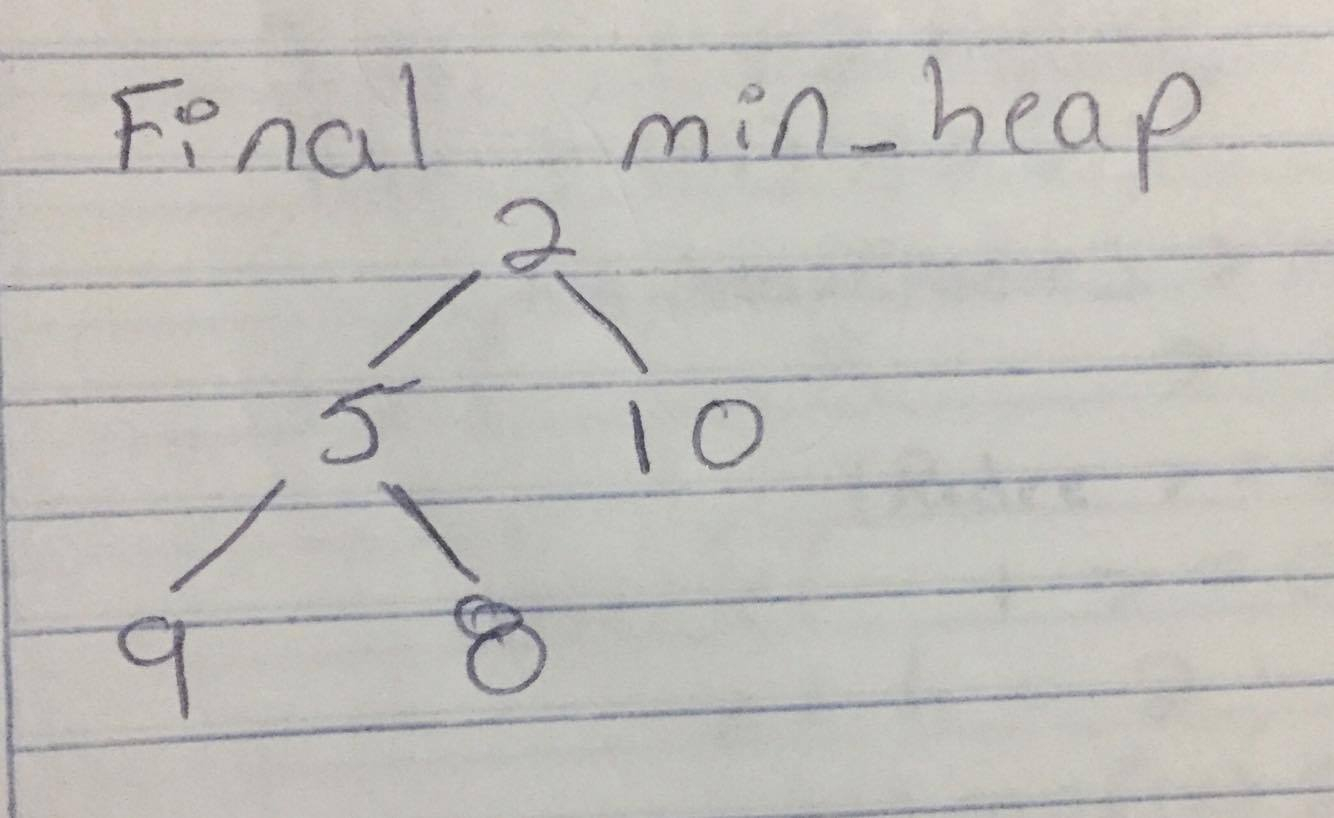 Final min_heap
2
5 10
9 8